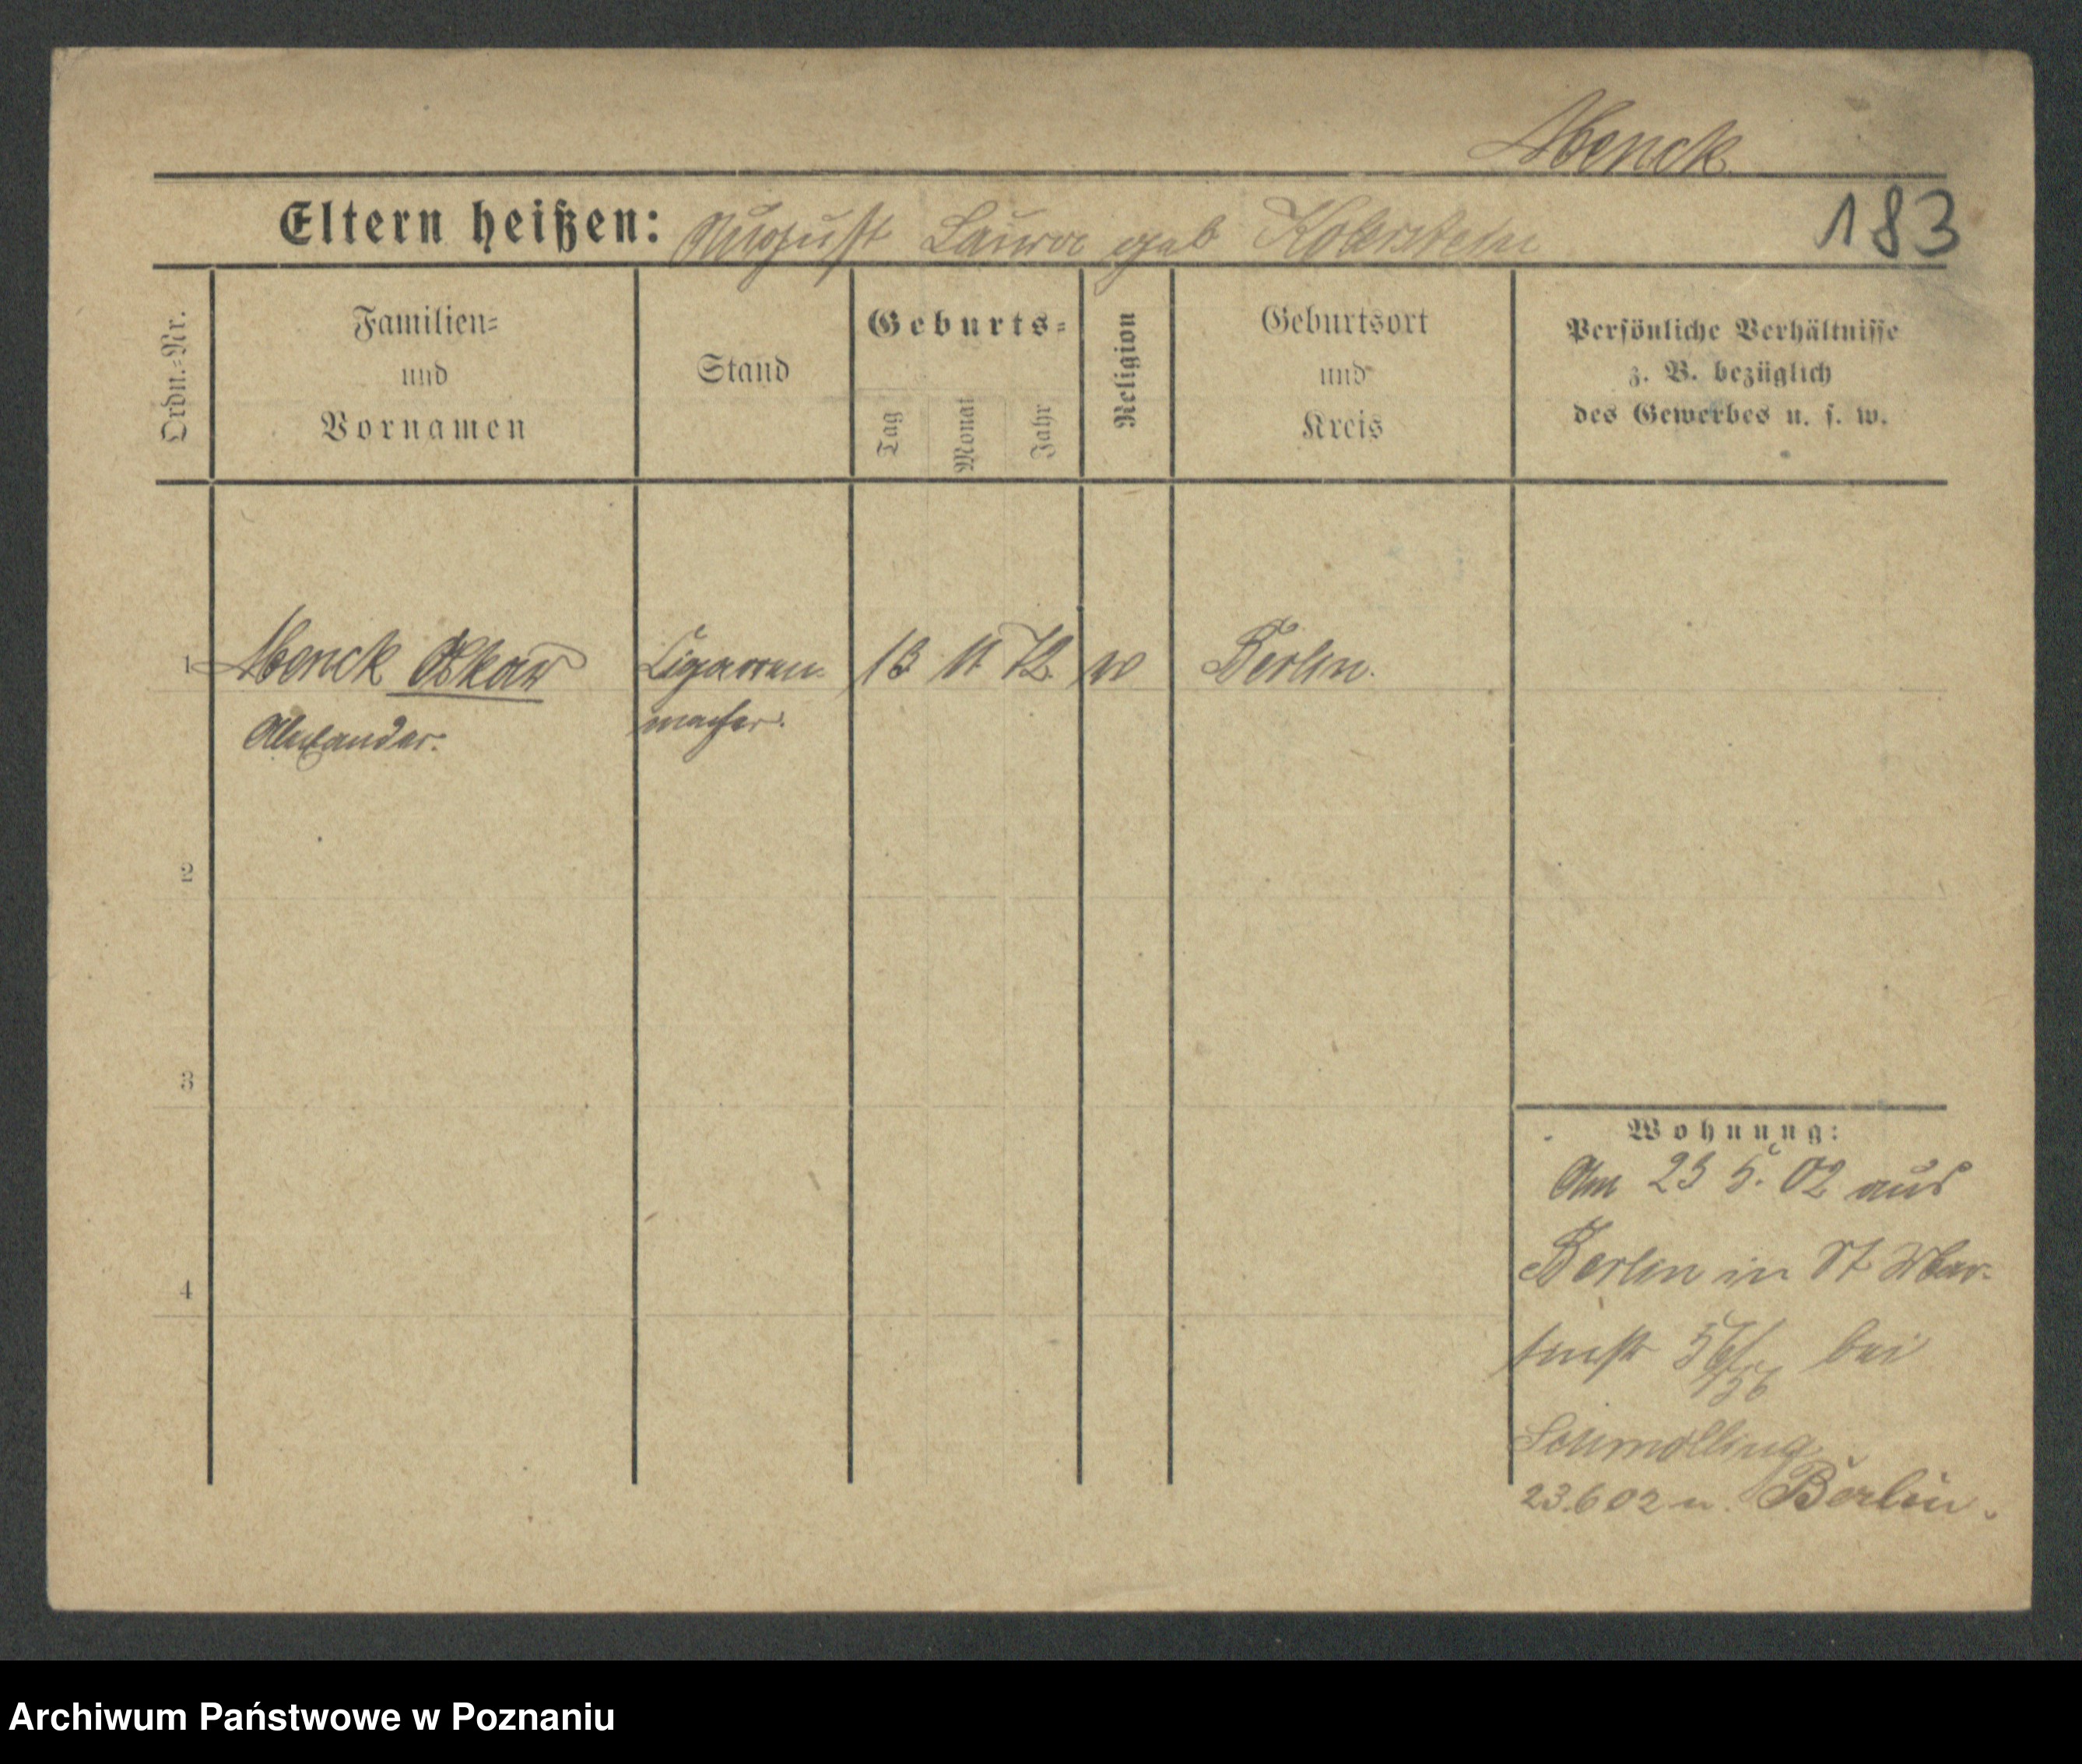 Abenck
183
Eltern heißen: August Laura geb Koberstein
Ordn.=Nr.
Familien=
und
Vornamen
Stand
Geburts=
Tag
Monat
Jahr
Religion
Geburtsort
und
Kreis
Persönliche Verhältnisse
z. B. bezüglich
des Gewerbes u. s. w.
1 Abenck Oskar Cigarren 13 11 72 Berlin.
Alexander. macher.
2
3
4
Wohnung:
Am 23 5. 02 aus
Berlin in St Mar-
tinstr 56/ bei
56
Schmolling
23.6 02 n. Berlin.
Archiwum Państwowe w Poznaniu